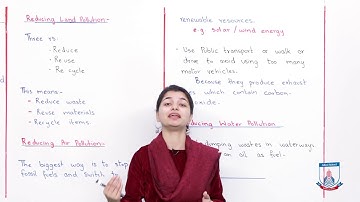 Reducing Land Pollution:-
Three rs.
- Reduce
- Reuse
- Re cycle
This means-
- Reduce waste
- Reuse materials
- Recycle items
Reducing Air Pollution:-
The biggest way is to stop
fossil fuels and switch to
renewable resources.
e.g. solar / wind energy
• Use Public transport or walk or
drive to avoid using too many
motor vehicles.
Because they produce exhaust
which contain carbon
oxide.
Reducing Water Pollution
dumping wastes in waterways
on oil as fuel-